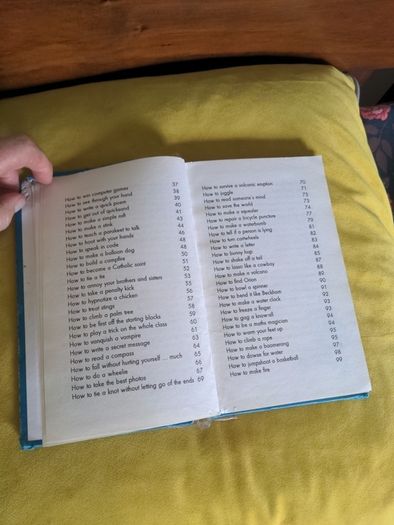 How to win computer games 37
How to see through your hand 38
How to write a quick poem 39
How to get out of quicksand 40
How to make a simple raft 41
How to make a stink 43
How to teach a parakeet to talk 44
How to hoot with your hands 46
How to speak in code 48
How to make a balloon dog 48
How to build a campfire 50
How to become a Catholic saint 51
How to tie a tie 52
How to annoy your brothers and sisters 53
How to take a penalty kick 55
How to hypnotize a chicken 56
How to treat stings 57
How to climb a palm tree 58
How to be first off the starting blocks 59
How to play a trick on the whole class 60
How to vanquish a vampire 61
How to write a secret message 63
How to read a compass 64
How to fall without hurting yourself ... much 65
How to do a wheelie 66
How to take the best photos 67
How to tie a knot without letting go of the ends 69
How to survive a volcanic eruption 70
How to juggle 71
How to read someone's mind 73
How to save the world 73
How to make a squealer 74
How to repair a bicycle puncture 77
How to make a waterbomb 79
How to tell if a person is lying 81
How to turn cartwheels 82
How to write a letter 83
How to bunny hop 84
How to shake off a tail 85
How to lasso like a cowboy 87
How to make a volcano 88
How to find Orion 89
How to bowl a spinner 90
How to bend it like Beckham 91
How to make a water clock 92
How to freeze a finger 93
How to gag a know-all 93
How to be a maths magician 94
How to warm your feet up 94
How to climb a rope 95
How to make a boomerang 95
How to dowse for water 97
How to jumpshoot a basketball 98
How to make fire 99